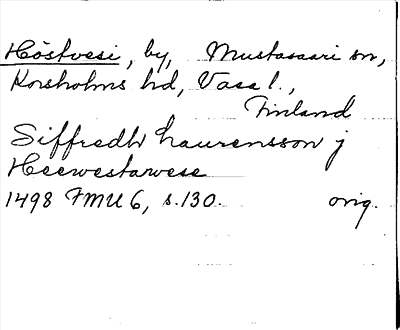 Höstvesi, by, Mustasaari sn,
Korsholms hd, Vasa l.,
Finland
Siffredh Laurensson j
Heewestawese
1498 FMU 6, s. 130. orig.